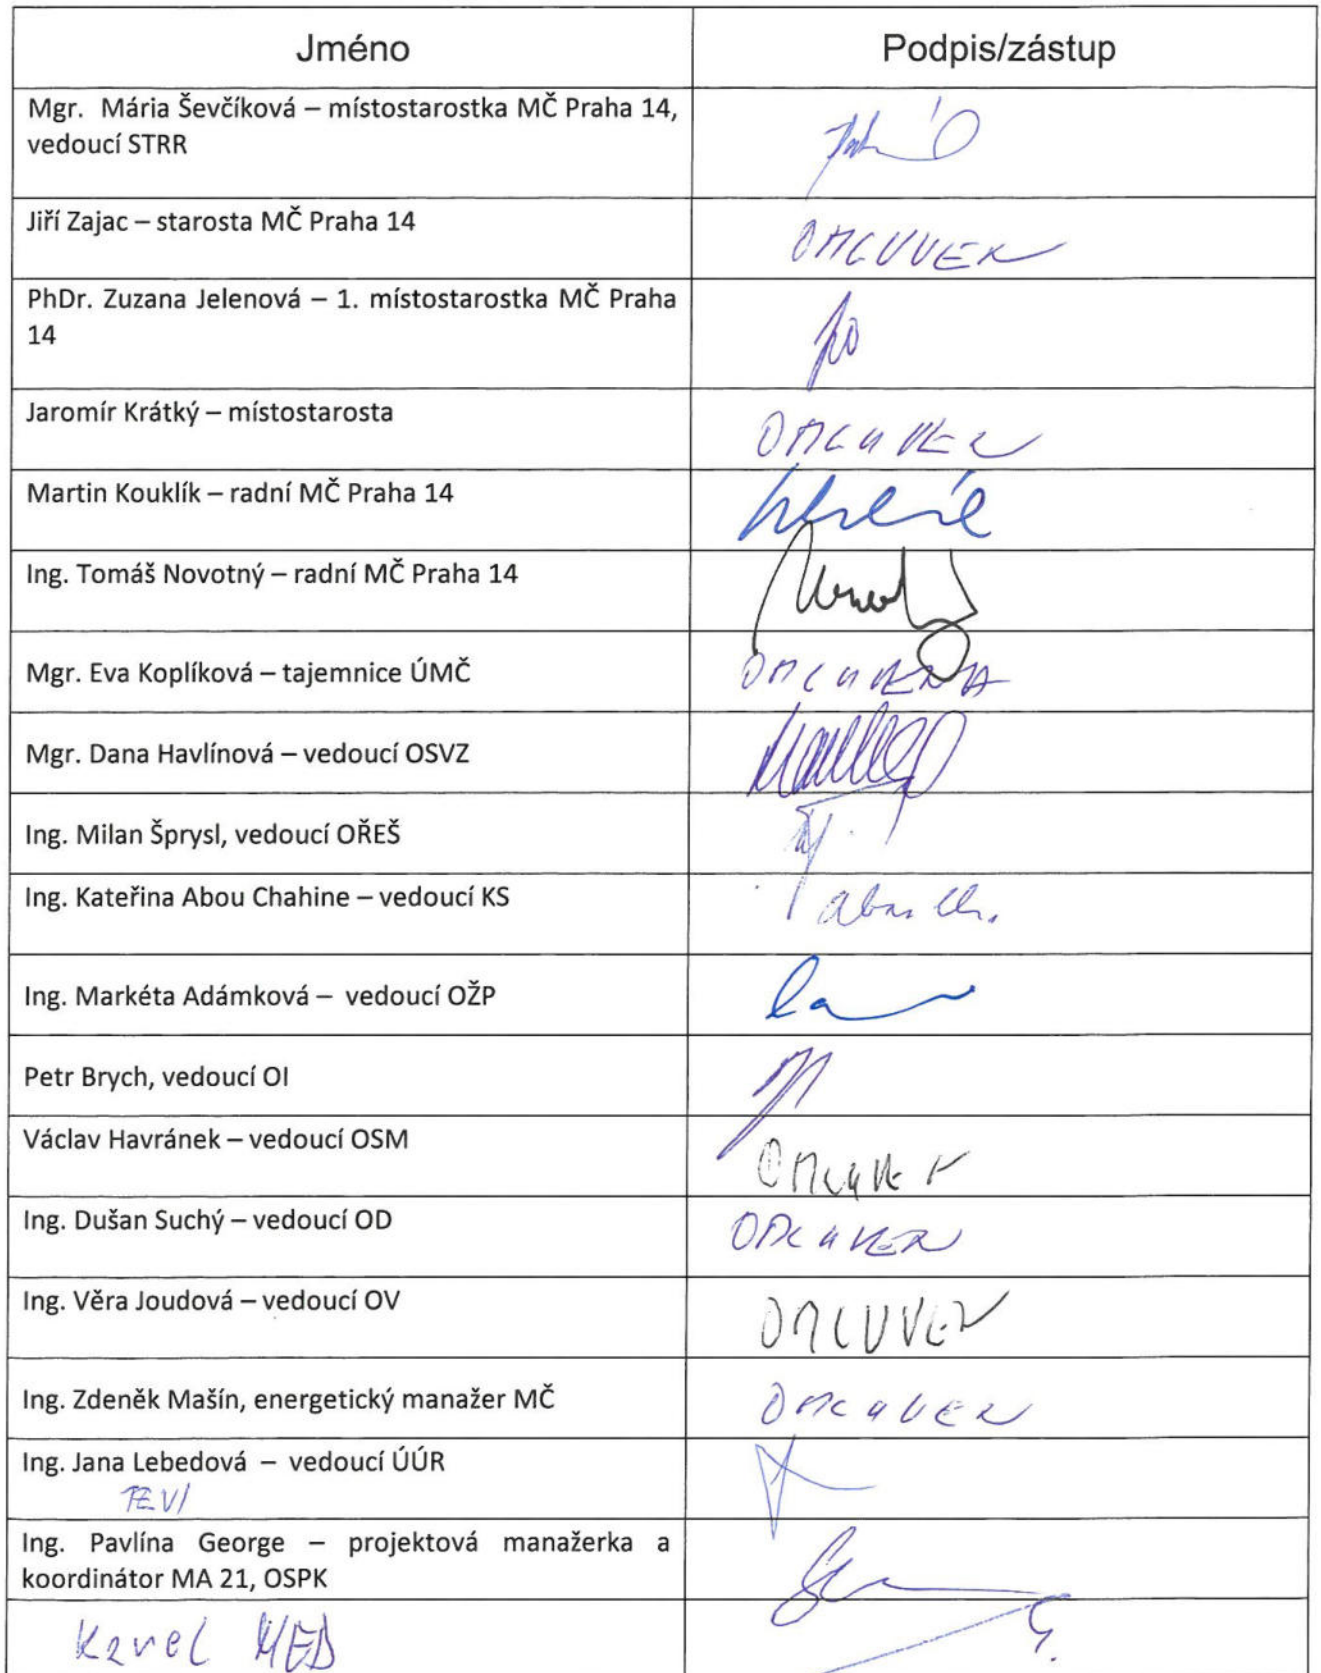 Jméno
Podpis/zástup
Mgr. Mária Ševčíková – místostarostka MČ Praha 14,
vedoucí STRR
Jiří Zajac – starosta MČ Praha 14
OMLUVEN
PhDr. Zuzana Jelenová – 1. místostarostka MČ Praha
14
Jaromír Krátký – místostarosta
OMLUVEN
Martin Kouklík – radní MČ Praha 14
Ing. Tomáš Novotný – radní MČ Praha 14
Mgr. Eva Koplíková – tajemnice ÚMČ
OMLUVENA
Mgr. Dana Havlínová – vedoucí OSVZ
Ing. Milan Šprysl, vedoucí OŘEŠ
Ing. Kateřina Abou Chahine – vedoucí KS
Ing. Markéta Adámková – vedoucí OŽP
Petr Brych, vedoucí OI
Václav Havránek – vedoucí OSM
OMLUVEN
Ing. Dušan Suchý – vedoucí OD
OMLUVEN
Ing. Věra Joudová – vedoucí OV
OMLUVEN
Ing. Zdeněk Mašín, energetický manažer MČ
OMLUVEN
Ing. Jana Lebedová – vedoucí ÚÚR
Ing. Pavlína George – projektová manažerka a
koordinátor MA 21, OSPK
Karel MED